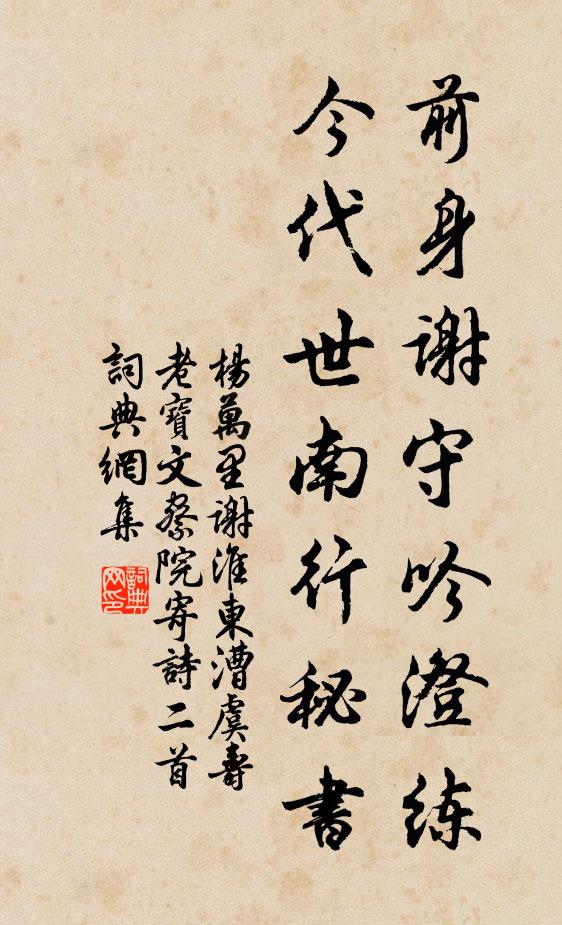 前身謝守吟澄练
今代世南行秘書
楊萬里謝淮東漕虞壽
老寶文察院寄詩二首
詞典網集
詞典
网印